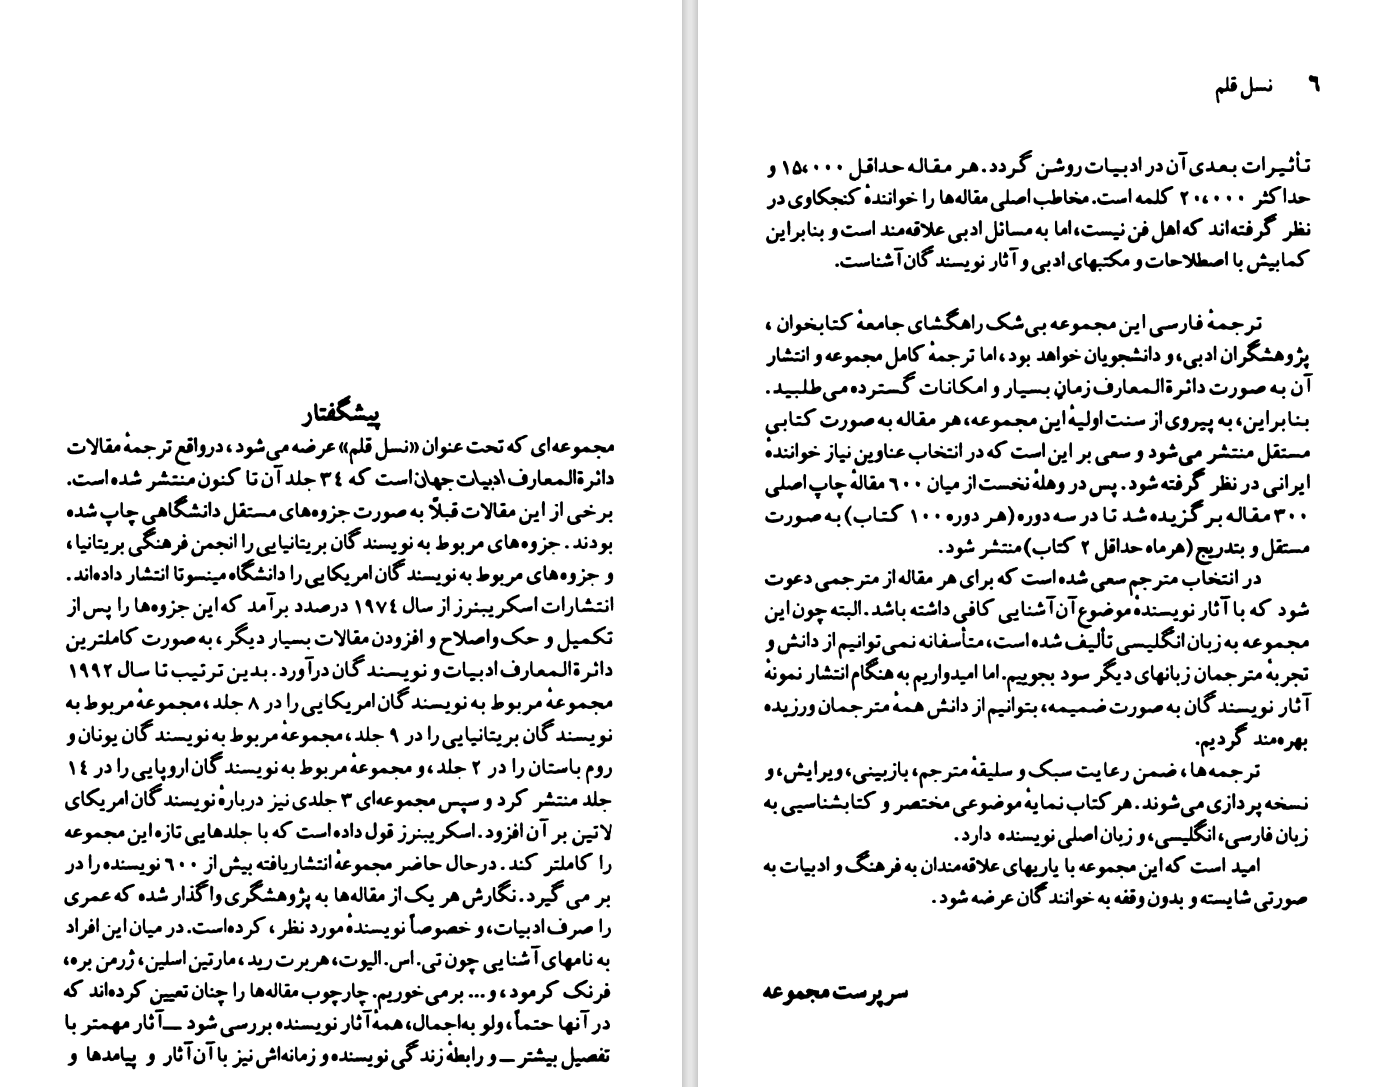 پیشگفتار
مجموعه‌ای که تحت عنوان «نسل قلم» عرضه می‌شود، درواقع ترجمهٔ مقالات
دائرةالمعارف ادبیات جهان است که ۳۴ جلد آن تا کنون منتشر شده است.
برخی از این مقالات قبلاً به صورت جزوه‌های مستقل دانشگاهی چاپ شده
بودند. جزوه‌های مربوط به نویسندگان بریتانیایی را انجمن فرهنگی بریتانیا،
و جزوه‌های مربوط به نویسندگان امریکایی را دانشگاه مینسوتا انتشار داده‌اند.
انتشارات اسکریبنرز از سال ۱۹۷۴ درصدد برآمد که این جزوه‌ها را پس از
تکمیل و حک‌واصلاح و افزودن مقالات بسیار دیگر، به صورت کاملترین
دائرةالمعارف ادبیات و نویسندگان درآورد. بدین ترتیب تا سال ۱۹۹۲
مجموعهٔ مربوط به نویسندگان امریکایی را در ۸ جلد، مجموعهٔ مربوط به
نویسندگان بریتانیایی را در ۹ جلد، مجموعهٔ مربوط به نویسندگان یونان و
روم باستان را در ۲ جلد، و مجموعهٔ مربوط به نویسندگان اروپایی را در ۱۴
جلد منتشر کرد و سپس مجموعه‌ای ۳ جلدی نیز دربارهٔ نویسندگان امریکای
لاتین بر آن افزود. اسکریبنرز قول داده است که با جلدهایی تازه این مجموعه
را کاملتر کند. درحال حاضر مجموعهٔ انتشاریافته بیش از ۶۰۰ نویسنده را در
بر می‌گیرد. نگارش هر یک از مقاله‌ها به پژوهشگری واگذار شده که عمری
را صرف ادبیات، و خصوصاً نویسندهٔ مورد نظر، کرده‌است. در میان این افراد
به نامهای آشنایی چون تی. اس. الیوت، هربرت رید، مارتین اسلین، ژرمن بره،
فرنک کرمود، و... برمی‌خوریم. چارچوب مقاله‌ها را چنان تعیین کرده‌اند که
در آنها حتماً، ولو به‌اجمال، همهٔ آثار نویسنده بررسی شود ــ آثار مهمتر با
تفصیل بیشتر ــ و رابطهٔ زندگی نویسنده و زمانه‌اش نیز با آن آثار و پیامدها و
۶ نسل قلم
تأثیرات بعدی آن در ادبیات روشن گردد. هر مقاله حداقل ۱۵،۰۰۰ و
حداکثر ۲۰،۰۰۰ کلمه است. مخاطب اصلی مقاله‌ها را خوانندهٔ کنجکاوی در
نظر گرفته‌اند که اهل فن نیست، اما به مسائل ادبی علاقه‌مند است و بنابراین
کمابیش با اصطلاحات و مکتبهای ادبی و آثار نویسندگان آشناست.
ترجمهٔ فارسی این مجموعه بی‌شک راهگشای جامعهٔ کتابخوان،
پژوهشگران ادبی، و دانشجویان خواهد بود، اما ترجمهٔ کامل مجموعه و انتشار
آن به صورت دائرةالمعارف زمانِ بسیار و امکانات گسترده می‌طلبید.
بنابراین، به پیروی از سنت اولیهٔ این مجموعه، هر مقاله به صورت کتابی
مستقل منتشر می‌شود و سعی بر این است که در انتخاب عناوین نیاز خوانندهٔ
ایرانی در نظر گرفته شود. پس در وهلهٔ نخست از میان ۶۰۰ مقالهٔ چاپ اصلی
۳۰۰ مقاله برگزیده شد تا در سه دوره (هر دوره ۱۰۰ کتاب) به صورت
مستقل و بتدریج (هرماه حداقل ۲ کتاب) منتشر شود.
در انتخاب مترجم سعی شده است که برای هر مقاله از مترجمی دعوت
شود که با آثار نویسندهٔ موضوع آن آشنایی کافی داشته باشد. البته چون این
مجموعه به زبان انگلیسی تألیف شده است، متأسفانه نمی‌توانیم از دانش و
تجربهٔ مترجمان زبانهای دیگر سود بجوییم. اما امیدواریم به هنگام انتشار نمونهٔ
آثار نویسندگان به صورت ضمیمه، بتوانیم از دانش همهٔ مترجمان ورزیده
بهره‌مند گردیم.
ترجمه‌ها، ضمن رعایت سبک و سلیقهٔ مترجم، بازبینی، ویرایش، و
نسخه پردازی می‌شوند. هر کتاب نمایهٔ موضوعی مختصر و کتابشناسیی به
زبان فارسی، انگلیسی، و زبان اصلی نویسنده دارد.
امید است که این مجموعه با یاریهای علاقه‌مندان به فرهنگ و ادبیات به
صورتی شایسته و بدون وقفه به خوانندگان عرضه شود.
سرپرست مجموعه